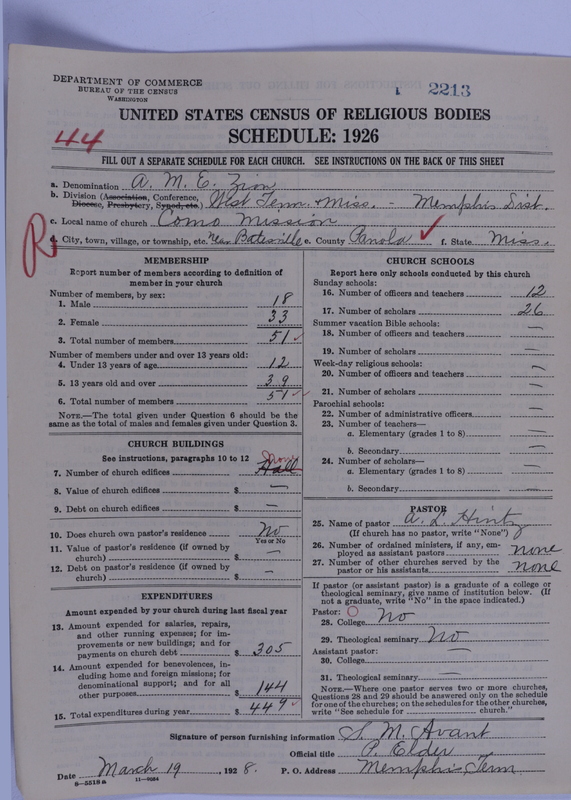 DEPARTMENT OF COMMERCE
BUREAU OF THE CENSUS
WASHINGTON
1 2213
UNITED STATES CENSUS OF RELIGIOUS BODIES
SCHEDULE: 1926
44
FILL OUT A SEPARATE SCHEDULE FOR EACH CHURCH. SEE INSTRUCTIONS ON THE BACK OF THIS SHEET
a. Denomination A. M. E. Zion
b. Division (Association, Conference, Diocese, Presbytery, Synod, etc.) West Tenn. & Miss. - Memphis Dist.
c. Local name of church Como Mission
R
d. City, town, village, or township, etc. Near Batesville e. County Panola ✓ f. State Miss.
MEMBERSHIP
Report number of members according to definition of
member in your church
Number of members, by sex:
1. Male 18
2. Female 33
3. Total number of members 51 ✓
Number of members under and over 13 years old:
4. Under 13 years of age 12
5. 13 years old and over 39
6. Total number of members 51 ✓
NOTE.—The total given under Question 6 should be the
same as the total of males and females given under Question 3.
CHURCH BUILDINGS
See instructions, paragraphs 10 to 12
7. Number of church edifices Hall
8. Value of church edifices $ —
9. Debt on church edifices $ —
10. Does church own pastor's residence No
Yes or No
11. Value of pastor's residence (if owned by
church) $ —
12. Debt on pastor's residence (if owned by
church) $ —
EXPENDITURES
Amount expended by your church during last fiscal year
13. Amount expended for salaries, repairs,
and other running expenses; for im-
provements or new buildings; and for
payments on church debt $ 305
14. Amount expended for benevolences, in-
cluding home and foreign missions; for
denominational support; and for all
other purposes $ 144
15. Total expenditures during year $ 449 ✓
CHURCH SCHOOLS
Report here only schools conducted by this church
Sunday schools:
16. Number of officers and teachers 12
17. Number of scholars 26
Summer vacation Bible schools:
18. Number of officers and teachers —
19. Number of scholars —
Week-day religious schools:
20. Number of officers and teachers —
21. Number of scholars —
Parochial schools:
22. Number of administrative officers —
23. Number of teachers—
a. Elementary (grades 1 to 8) —
b. Secondary —
24. Number of scholars—
a. Elementary (grades 1 to 8) —
b. Secondary —
PASTOR
25. Name of pastor A. L.
(If church has no pastor, write "None")
26. Number of ordained ministers, if any, em-
ployed as assistant pastors none
27. Number of other churches served by the
pastor or his assistants none
If pastor (or assistant pastor) is a graduate of a college or
theological seminary, give name of institution below. (If
not a graduate, write "No" in the space indicated.)
Pastor:
28. College No
29. Theological seminary No
Assistant pastor:
30. College —
31. Theological seminary —
NOTE.—Where one pastor serves two or more churches,
Questions 28 and 29 should be answered only on the schedule
for one of the churches; on the schedules for the other churches,
write "See schedule for church."
Signature of person furnishing information S. M. Avant
Official title P. Elder
Date March 19, 1928. P. O. Address Memphis Tenn
8—5518 a 11—9064